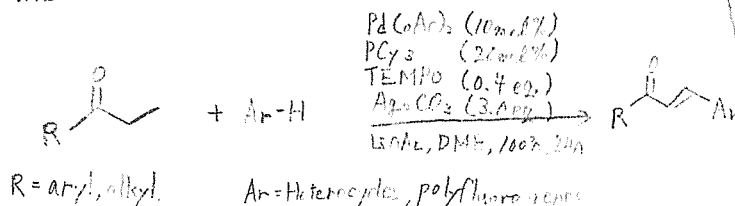 Pd(OAc)2 (10mol%)
PCy3 (20mol%)
TEMPO (0.4 eq.)
Ag2CO3 (3.0 eq.)
O
R
+ Ar-H
DME, 100
O
R
Ar
R = aryl, alkyl.
Ar = Heterocycles, polyfluoroarenes